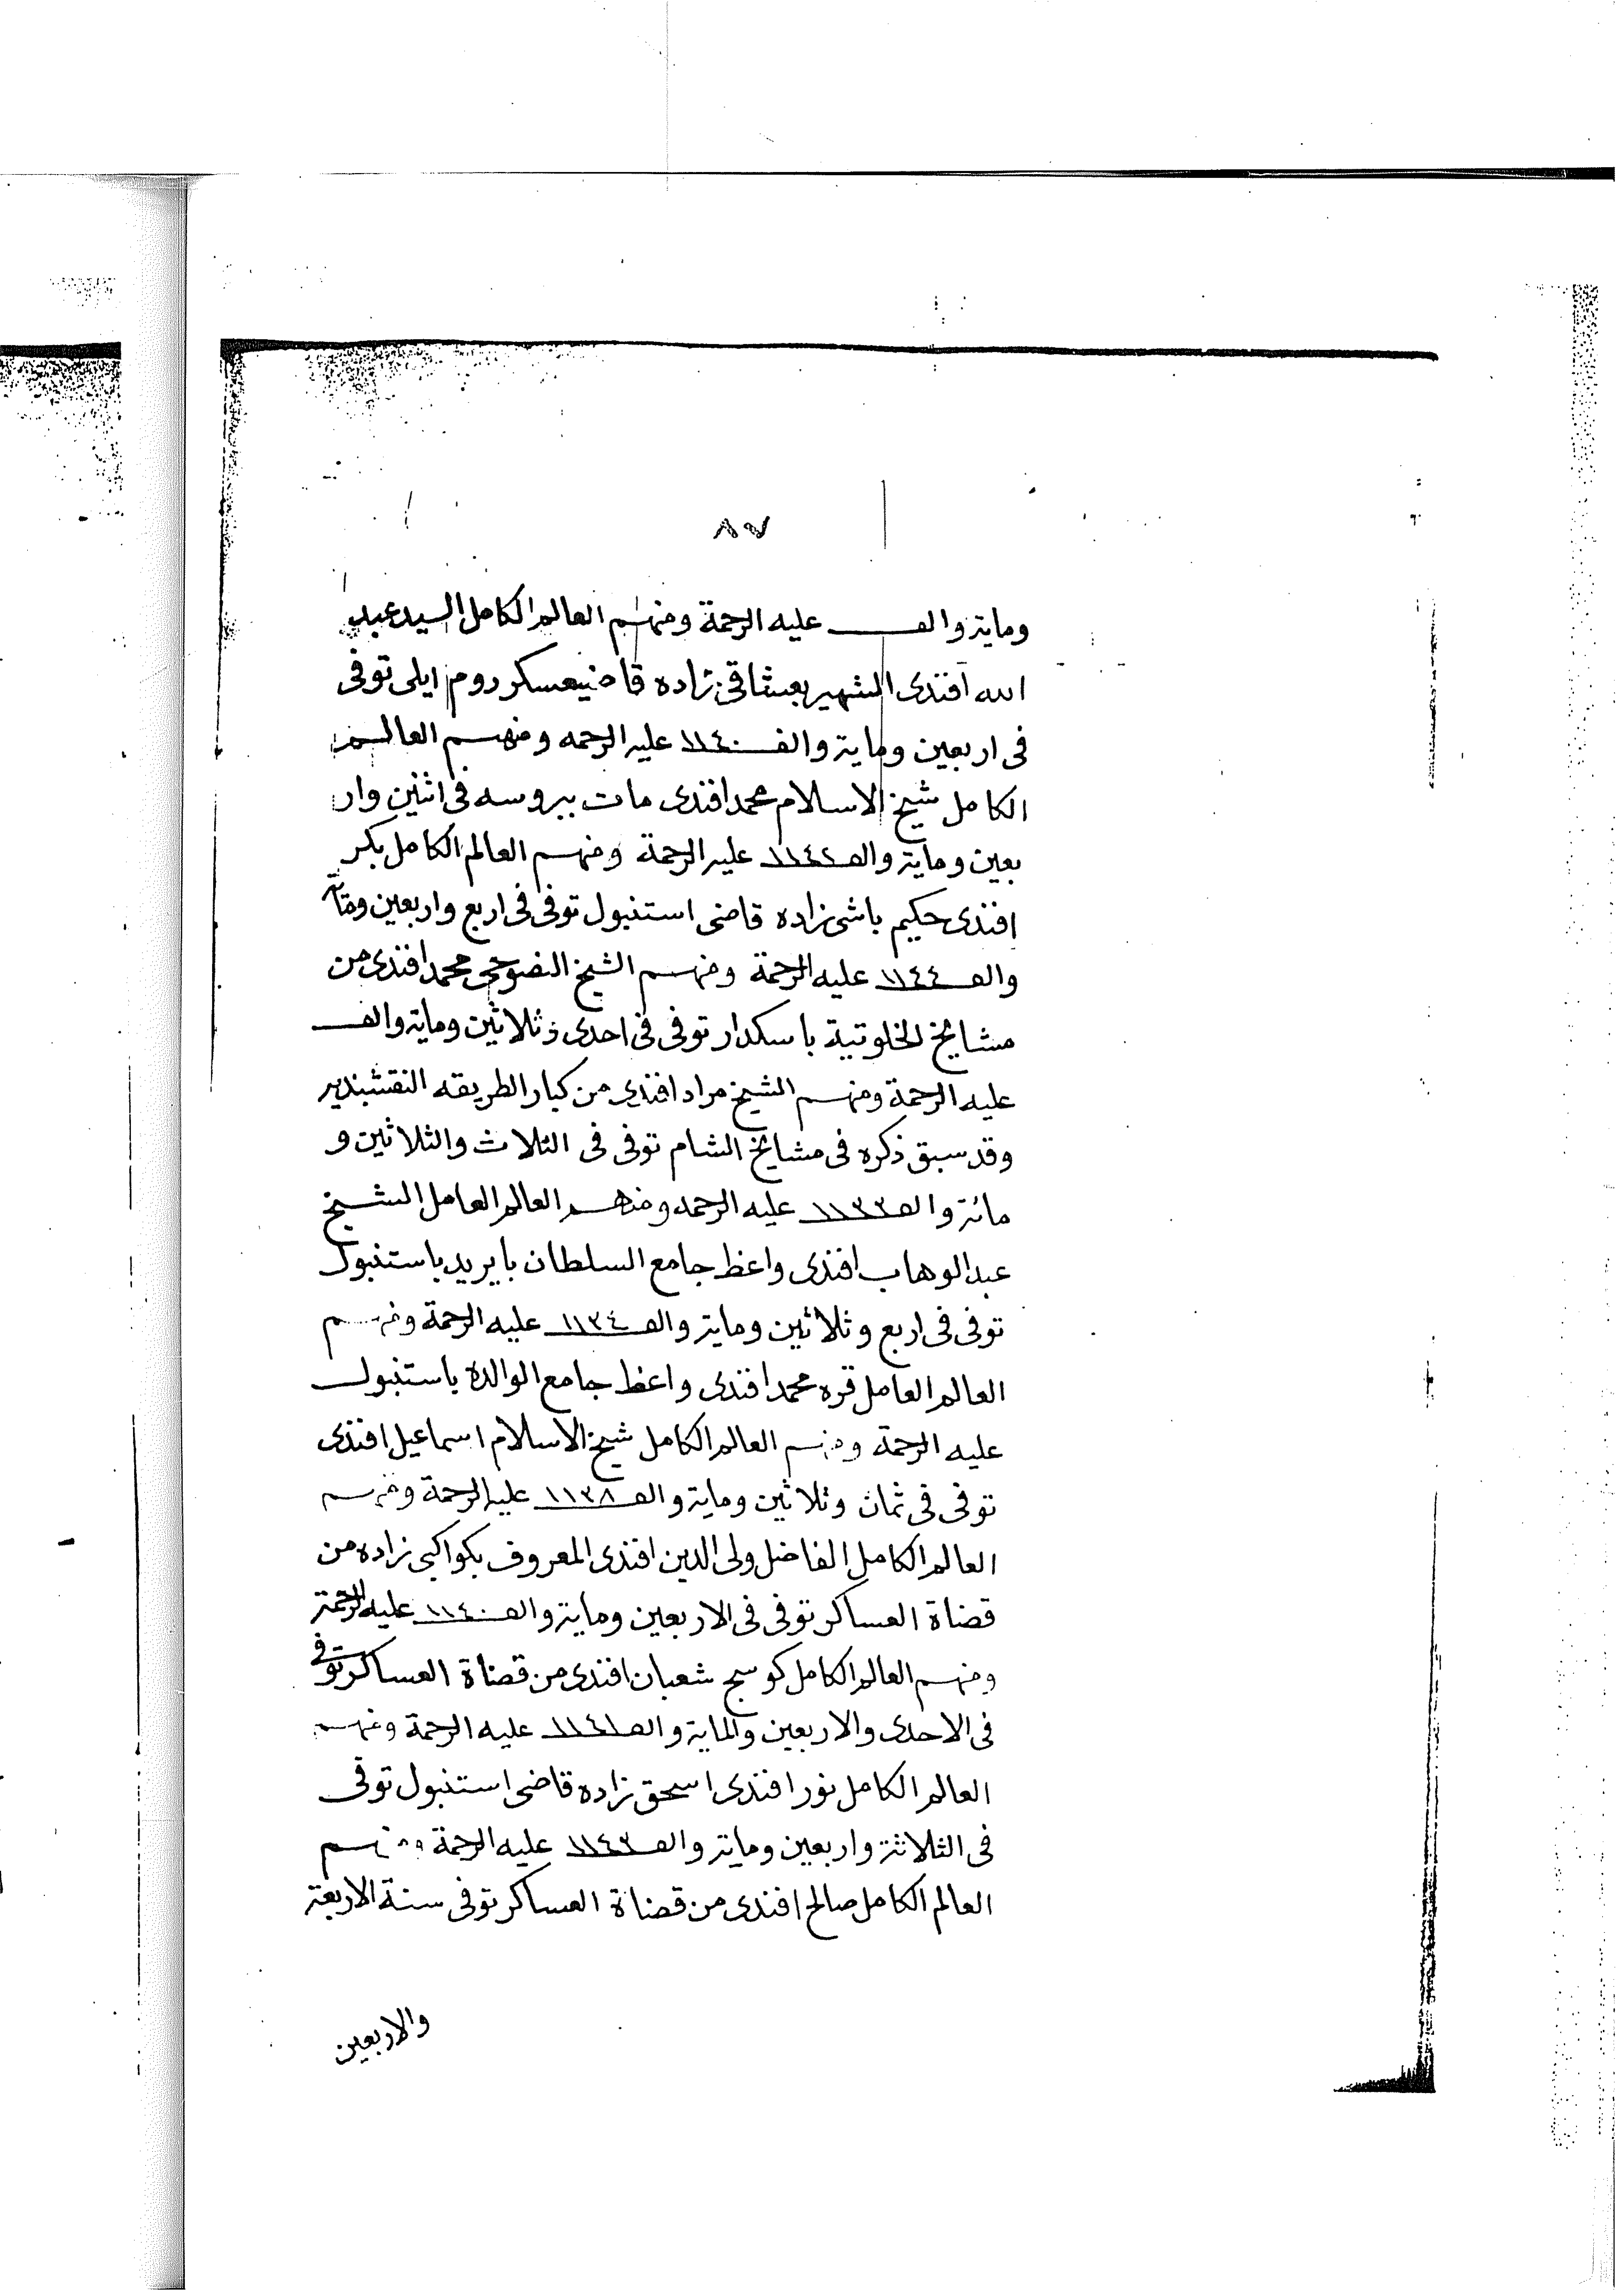 ٨٧
وماية والف عليه الرحمة ومنهم العالم الكامل السيد عبد
الله افندى الشهير بعشاقى زاده قاضيعسكر روم ايلى توفى
فى اربعين وماية والف ١١٤٠ عليه الرحمه ومنهم العالم
الكامل شيخ الاسلام محمد افندى مات ببروسه فى اثنين وار
بعين وماية والف ١١٤٢ عليه الرحمة ومنهم العالم الكامل بكر
افندى حكيم باشى زاده قاضى استنبول توفى فى اربع واربعين ومأة
والف ١١٤٤ عليه الرحمة ومنهم الشيخ النصوحى محمد افندى من
مشايخ الخلوتية باسكدار توفى فى احدى وثلاثين وماية والف
عليه الرحمة ومنهم الشيخ مراد افندى من كبار الطريقه النقشبنديه
وقد سبق ذكره فى مشايخ الشام توفى فى الثلاث والثلاثين و
مائة والف ١١٣٣ عليه الرحمه ومنهم العالم العامل الشيخ
عبد الوهاب افندى واعظ جامع السلطان بايريد باستنبول
توفى فى اربع وثلاثين وماية والف ١١٣٤ عليه الرحمة ومنهم
العالم العامل قره محمد افندى واعظ جامع الوالدة باستنبول
عليه الرحمة ومنهم العالم الكامل شيخ الاسلام اسماعيل افندى
توفى فى ثمان وثلاثين وماية والف ١١٣٨ عليه الرحمة ومنهم
العالم الكامل الفاضل ولى الدين افندى المعروف بكواكبى زاده من
قضاة العساكر توفى فى الاربعين وماية والف ١١٤٠ عليه الرحمة
ومنهم العالم الكامل كوسج شعبان افندى من قضاة العساكر توفى
فى الاحدى والاربعين والماية والف ١١٤١ عليه الرحمة ومنهم
العالم الكامل نور افندى اسحق زاده قاضى استنبول توفى
فى الثلاثة واربعين وماية والف ١١٤٣ عليه الرحمة ومنهم
العالم الكامل صالح افندى من قضاة العساكر توفى سنة الاربعة
والاربعين